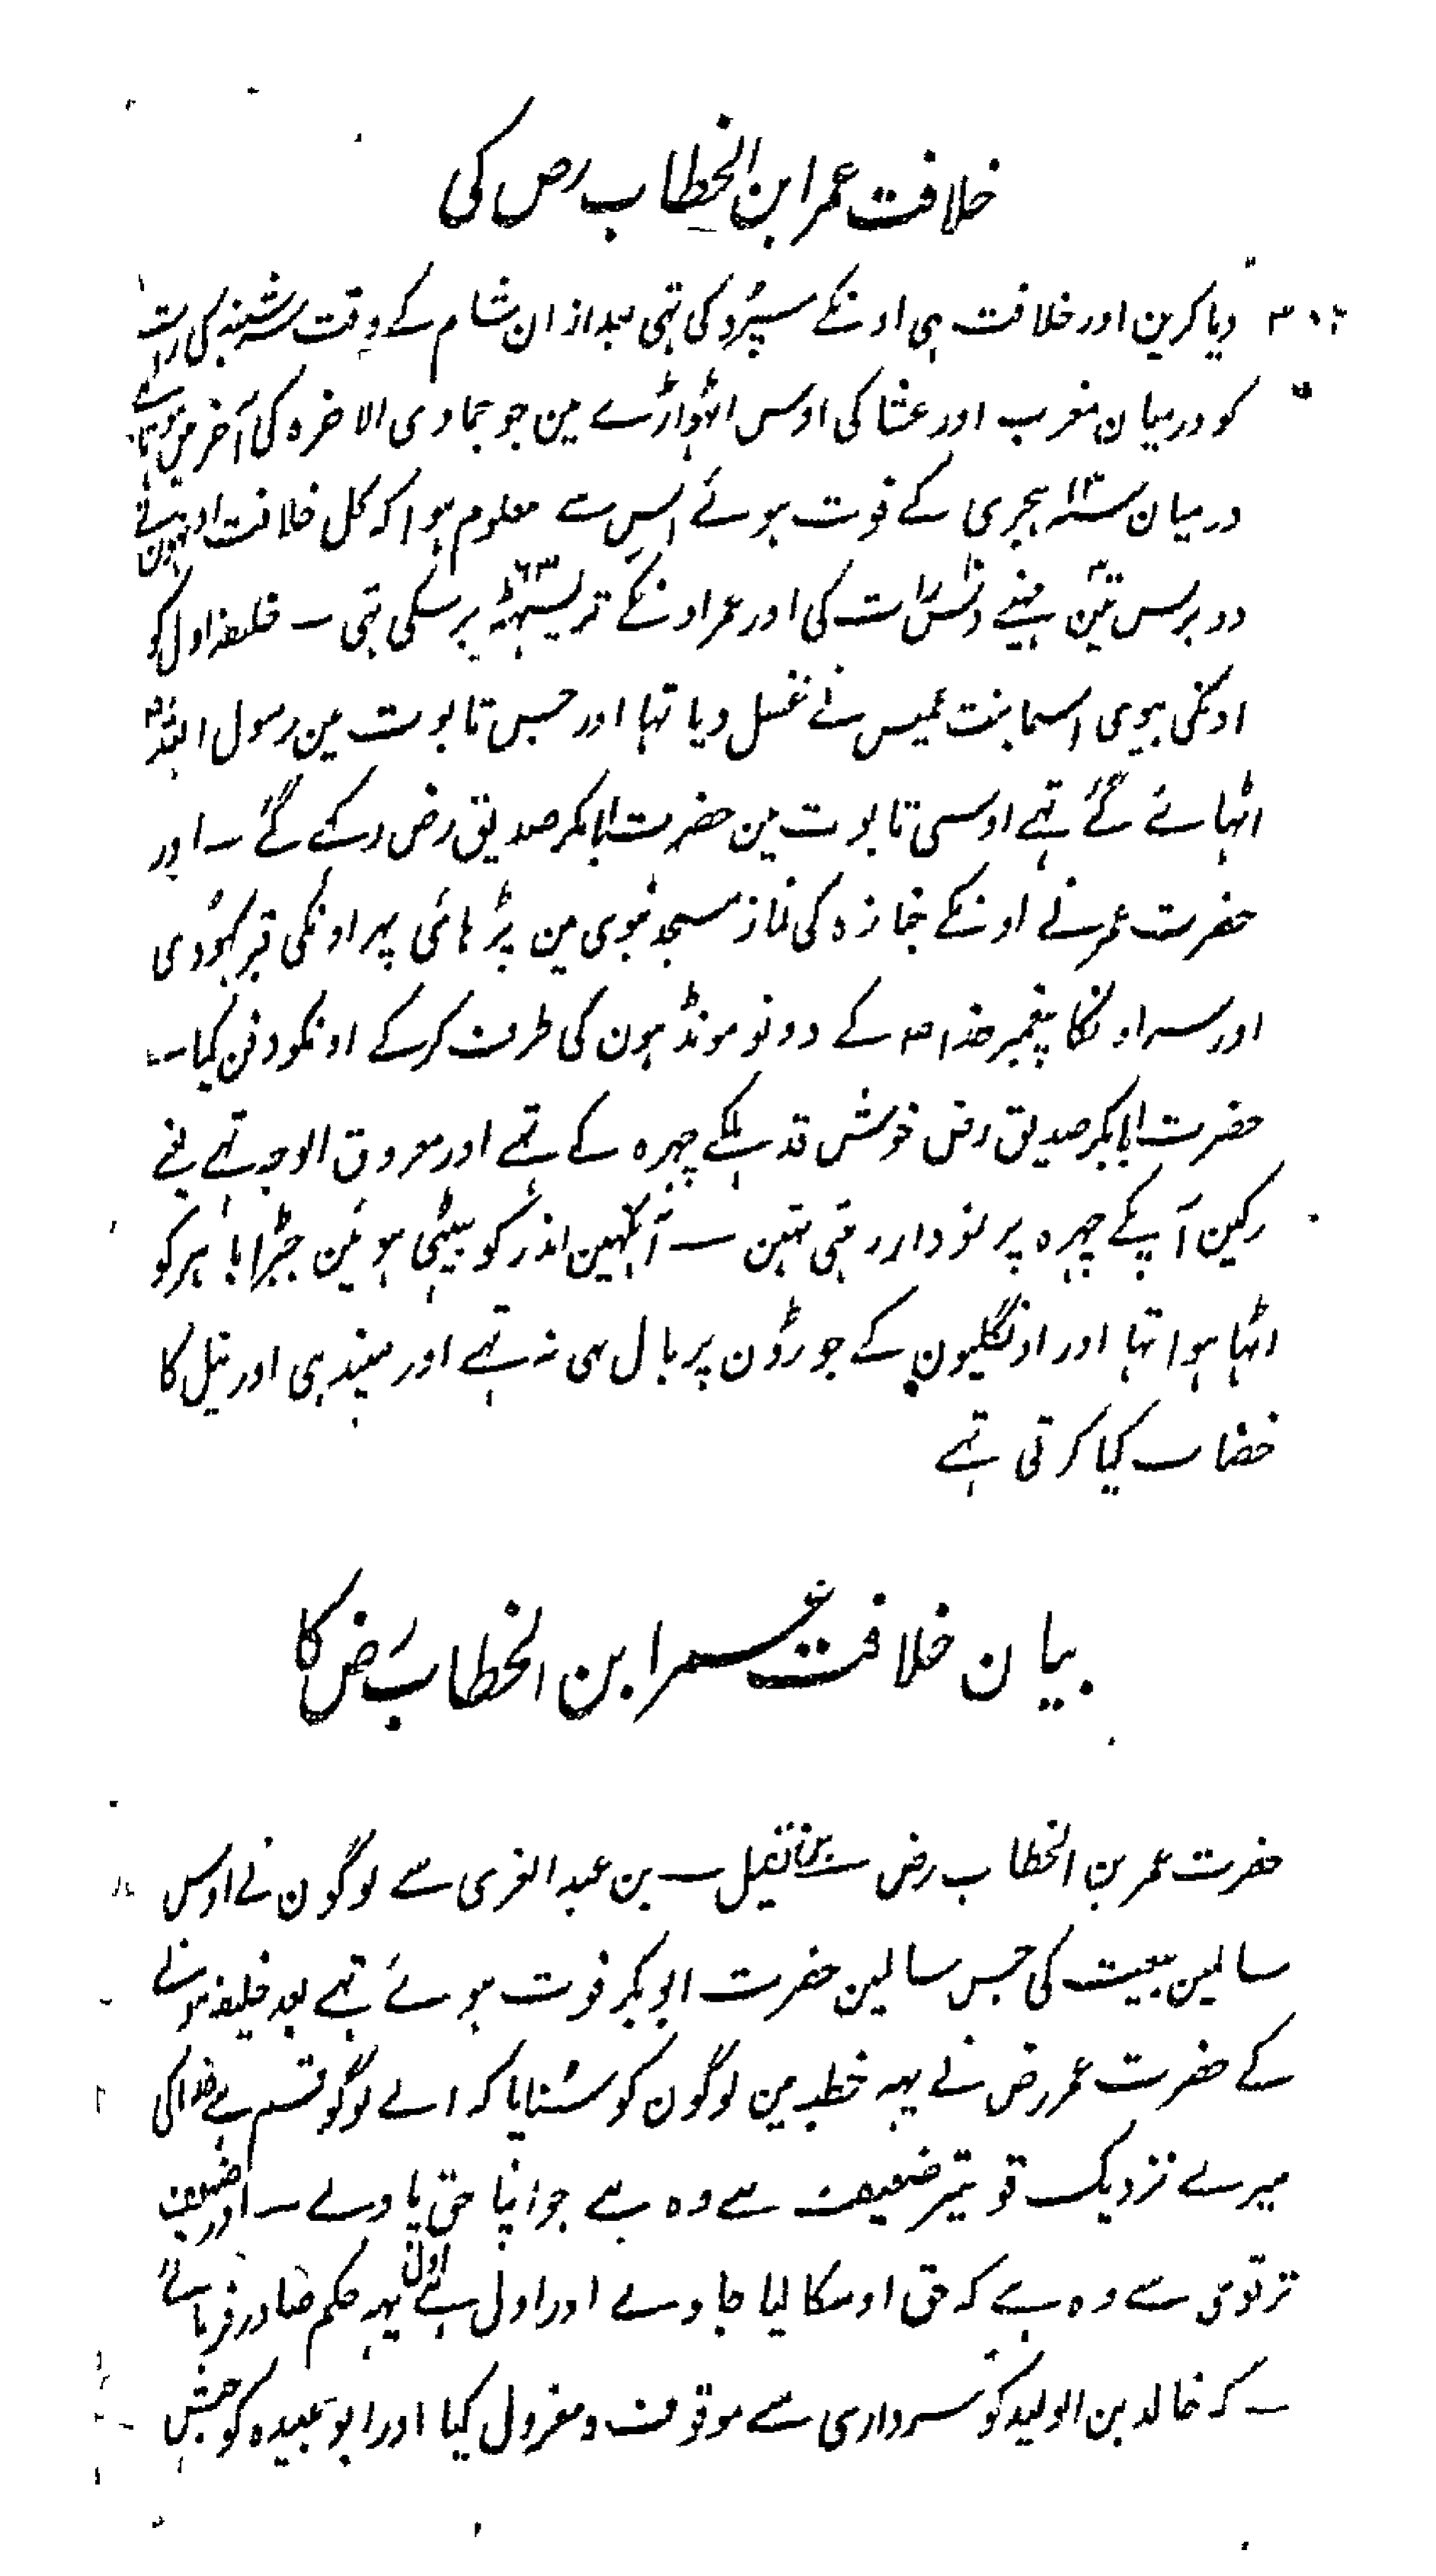 خلافت عمر ابن الخطاب رض کی
دیا کرین اور خلافت ہی اونکے سپرد کی تہی بعد ازان شام کے وقت سہ شنبہ کی رات
کو درمیان مغرب اور عشا کی اوس اٹہواڑے مین جو جمادی الاخرہ کی آخر مین
درمیان سنہ ۱۳ ہجری کے فوت ہوئے اس سے معلوم ہوا کہ کل خلافت اونہون نے
دو برس تین مہینے دس رات کی اور عمر اونکے تریسٹہہ ۶۳ برسکی تہی ۔ خلیفہ اول کو
اونکی بیوی اسما بنت عمیس نے غسل دیا تہا اور جس تابوت مین رسول اللہ
اٹہائے گئے تہے اوسی تابوت مین حضرت ابابکر صدیق رض رکہے گئے ۔ اور
حضرت عمر نے اونکے جنازہ کی نماز مسجد نبوی مین پڑہائی پہر اونکی قبر کہودی
اور سر اونکا پیغمبر خدا ص کے دونو مونڈہون کی طرف کر کے اونکو دفن کیا ۔
حضرت ابابکر صدیق رض خوش قد ہلکے چہرہ کے تہے اور معروق الوجہ تہے یعنے
رگین آپکے چہرہ پر نمودار رہتی تہین ۔ آنکہین اندر کو بیٹہی ہوئین جبڑا باہر کو
اٹہا ہوا تہا اور اونگلیون کے جوڑون پر بال ہی نہ تہے اور مہندہی اور نیل کا
خضاب کیا کرتی تہے
بیان خلافت عمر ابن الخطاب رض کا
حضرت عمر بن الخطاب رض بن نفیل بن عبد العزی سے لوگون نے اوس
سالمین بیعت کی جس سالمین حضرت ابوبکر فوت ہوئے تہے بعد خلیفہ ہونے
کے حضرت عمر رض نے یہہ خطبہ مین لوگون کو سنایا کہ اے لوگو قسم ہے خدا کی
میرے نزدیک قویتر ضعیف سے وہ ہے جو اپنا حق پاوے ۔ اور ضعیف
تر قوی سے وہ ہے کہ حق اوسکا لیا جاوے اور اول ہے اول یہہ حکم صادر فرمائے
۔ کہ خالد بن الولید کو سرداری سے موقوف و معزول کیا اور ابو عبیدہ کو جیش